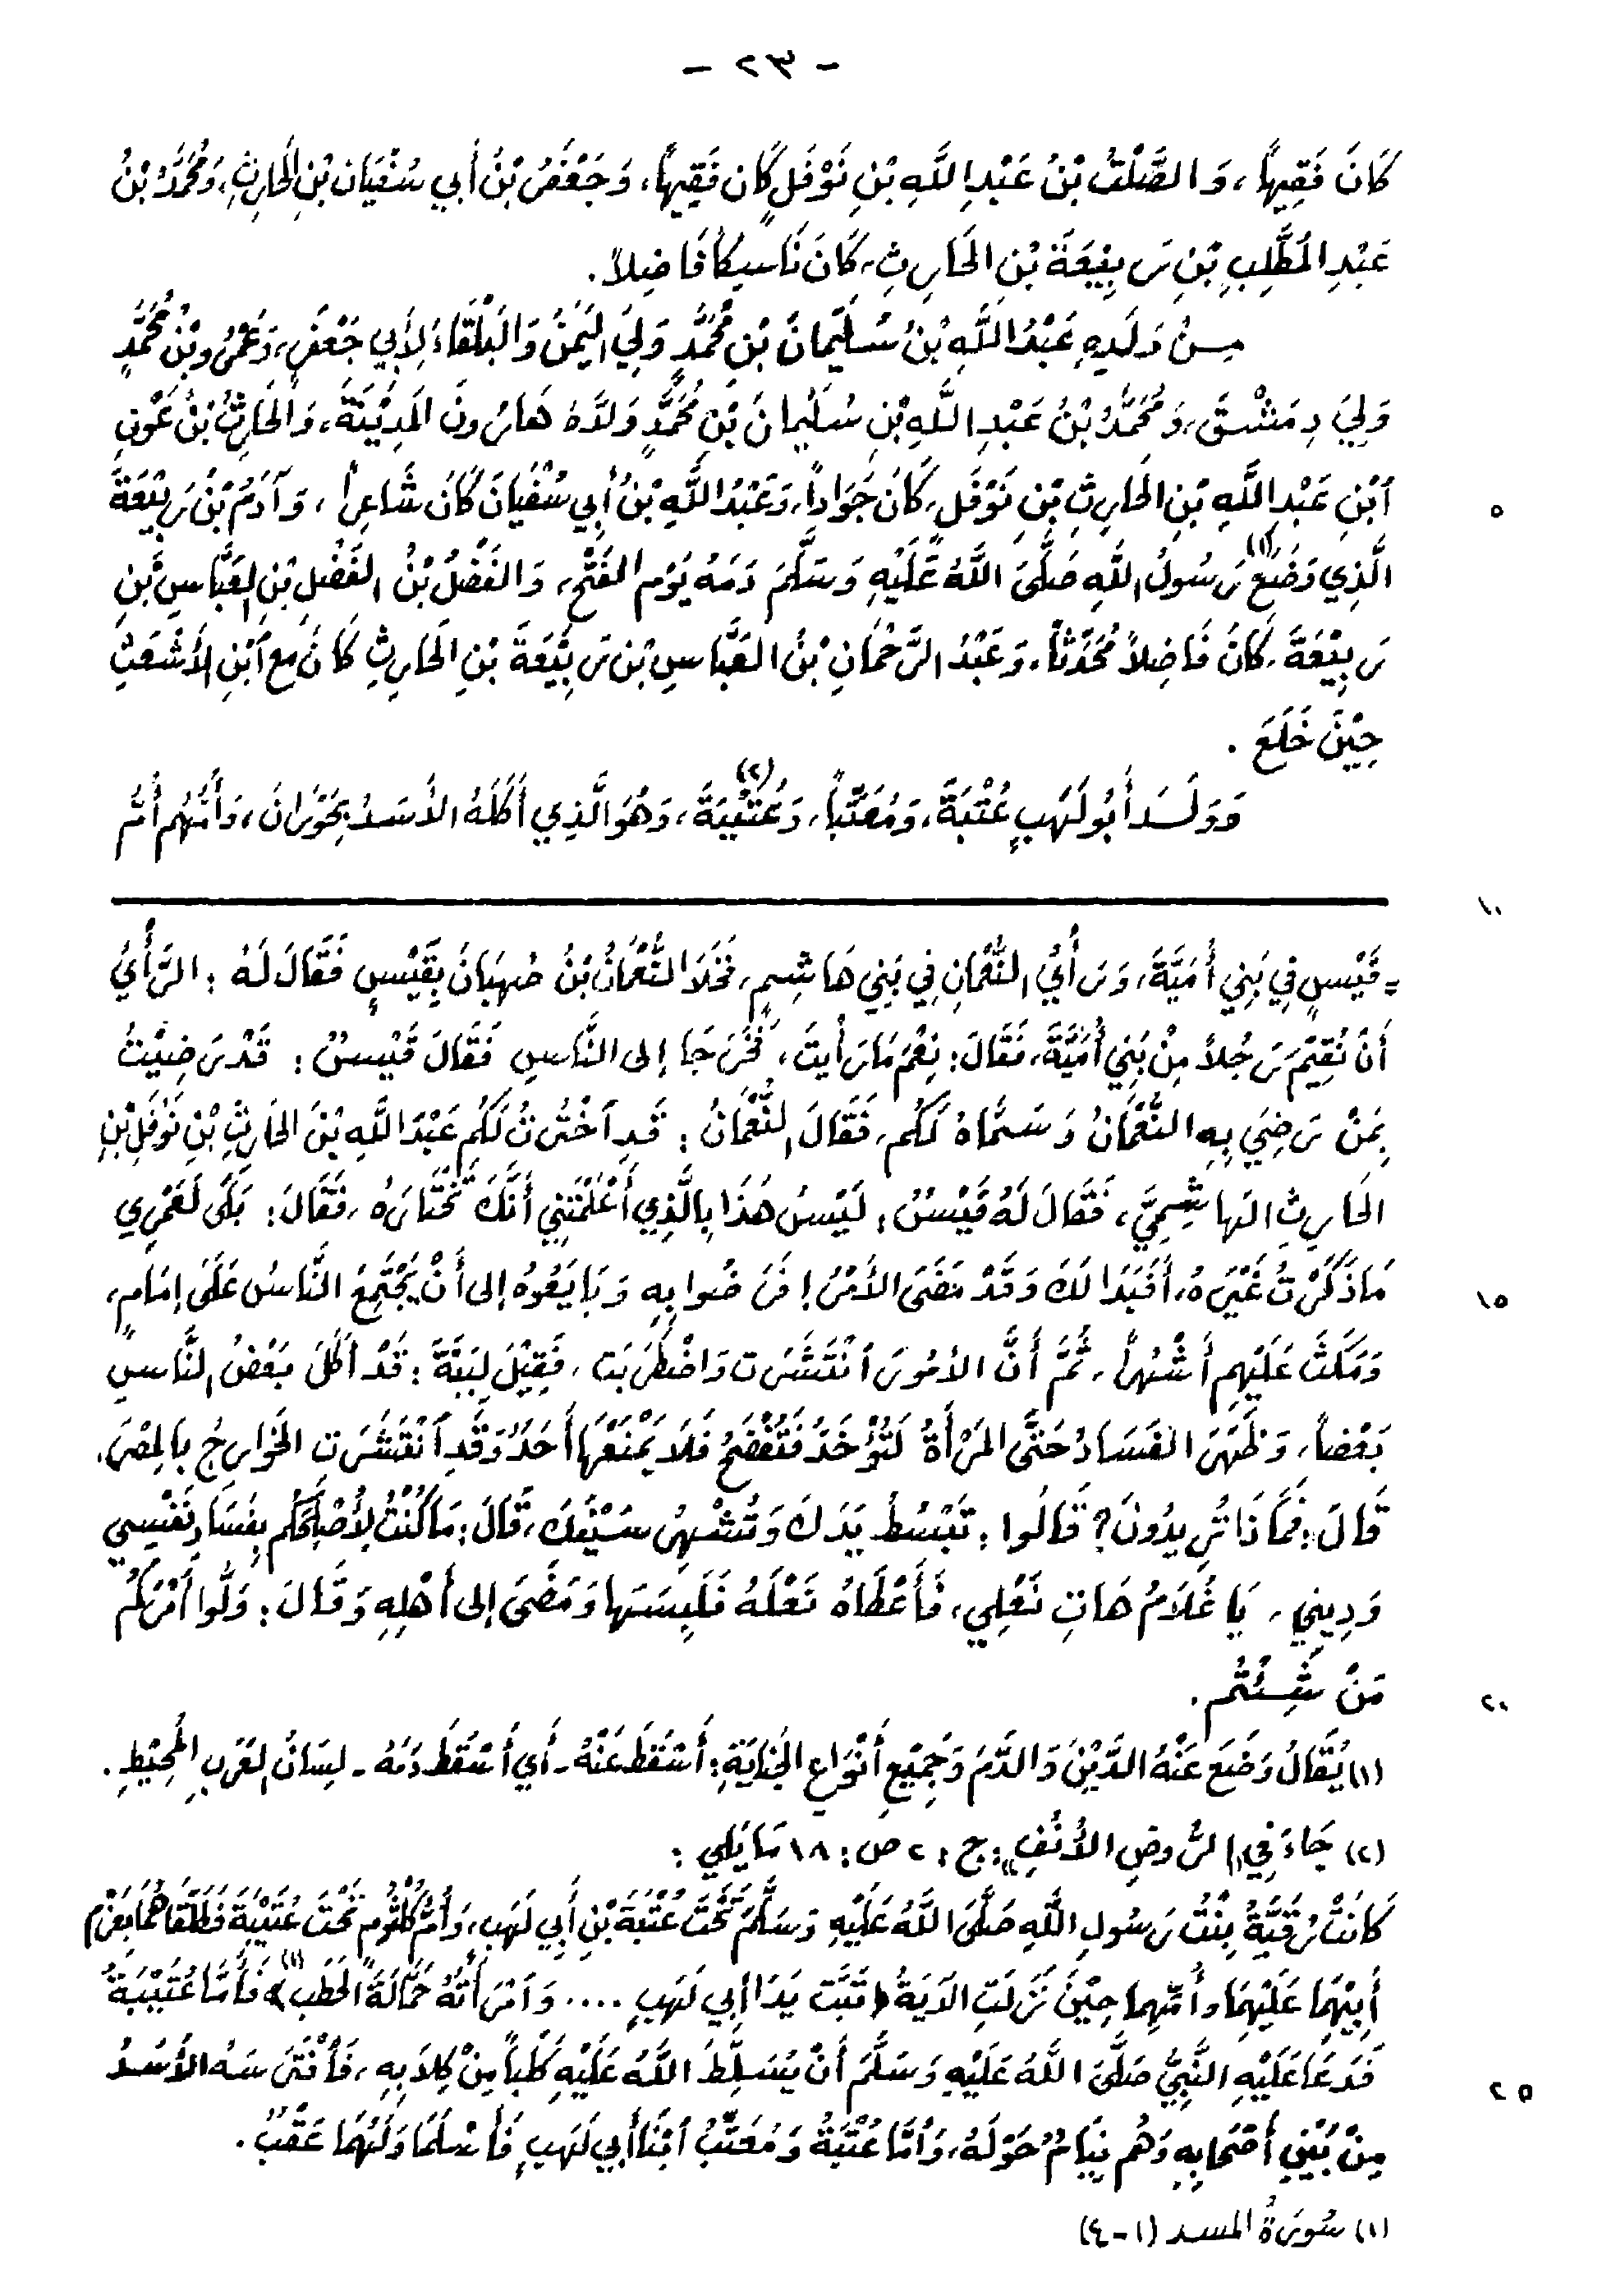 - ٢٣ -
كَانَ فَقِيهاً، وَالصَّلْتُ بْنُ عَبْدِ اللَّهِ بْنِ نَوْفَلٍ كَان فَقِيهاً، وَجَعْفَرُ بْنُ أَبي سُفْيَان بْنِ الحَارِثِ، وَمُحَمَّدُ بْنُ
عَبْدِ المُطَّلِبِ بْنِ رَبِيْعَةَ بْنِ الحَارِثِ، كَانَ نَاسِكاً فَاضِلاً.
مِنْ وَلَدِهِ عَبْدُ اللَّهِ بْنُ سُلَيْمَانَ بْنِ مُحَمَّدٍ وَلِيَ اليَمَنَ وَالبَلْقَاءَ لِأَبِي جَعْفَرٍ، وَعَمْرُو بْنُ مُحَمَّدٍ
وَلِيَ دِمَشْقَ، وَمُحَمَّدُ بْنُ عَبْدِ اللَّهِ بْنِ سُلَيْمانَ بْنِ مُحَمَّدٍ وَلَّاهُ هَارُونَ المَدِيْنَةَ، وَالحَارِثُ بْنُ عَوْنِ
ابْنِ عَبْدِ اللَّهِ بْنِ الحَارِثِ بْنِ نَوْفَلٍ، كَانَ جَوَاداً، وَعَبْدُ اللَّهِ بْنُ أَبِي سُفْيَانَ كَانَ شَاعِراً، وَآدَمُ بْنُ رَبِيْعَةَ
٥
الَّذِي وَضَعَ (١) رَسُولُ اللَّهِ صَلَّى اللَّهُ عَلَيْهِ وَسَلَّمَ دَمَهُ يَوْم الفَتْحِ، وَالفَضْلُ بْنُ الفَضْلِ بْنِ العَبَّاسِ بْنِ
رَبِيْعَةَ، كَانَ فَاضِلاً مُحَدِّثاً، وَعَبْدُ الرَّحْمَانِ بْنُ العَبَّاسِ بْنِ رَبِيْعَةَ بْنِ الحَارِثِ كَانَ مَع ابْنِ الأَشْعَثِ
حِيْنَ خَلَعَ.
وَوَلَدَ أَبُو لَهَبٍ عُتْبَةَ، وَمُعَتِّباً، وَعُتَيْبَةَ (٢)، وَهُوَ الَّذِي أَكَلَهُ الأَسَدُ بِحَوْرَانَ، وَأُمُّهُم أُمُّ
١٠
= قَيْسٍ فِي بَنِي أُمَيَّةَ، وَرَأْيُ النُّعْمَانِ فِي بَنِي هَاشِمٍ، فَخَلَا النُّعْمَانُ بْنُ صُهْبَانَ بِقَيْسٍ فَقَالَ لَهُ: الرَّأْيُ
أَنْ نُقِيْمَ رَجُلاً مِنْ بَنِي أُمَيَّةَ، فَقَالَ: نِعْمَ مَا رَأَيتَ، فَخَرَجَا إلى النَّاسِ فَقَالَ قَيْسٌ: قَدْ رَضِيْتُ
بِمَنْ رَضِيَ بِهِ النُّعْمَانُ وَسَمَّاهُ لَكُم، فَقَالَ النُّعْمَانُ: قَدِ اخْتَرْتُ لَكُم عَبْدَ اللَّهِ بْنَ الحَارِثِ بْنِ نَوْفَلِ بْنِ
الحَارِثِ الهَاشِمِيَّ، فَقَالَ لَهُ قَيْسٌ: لَيْسَ هَذَا بِالَّذِي أَعْلَمْتَنِي أَنَّكَ تَخْتَارَهُ، فَقَالَ: بَلَى لَعَمْرِي
مَا ذَكَرْتُ غَيْرَهُ، أَفَبَدَا لَكَ وَقَدْ مَضَى الأَمْرُ! فَرَضُوا بِهِ وَبَايَعُوهُ إلى أَنْ يَجْتَمِعَ النَّاسُ عَلَى إمَامٍ،
١٥
وَمَكَثَ عَلَيْهِم أَشْهُراً، ثُمَّ أَنَّ الأُمُورَ انْتَشَرَت وَاضْطَرَبَت، فَقِيْلَ لِبَبَّةَ: قَدْ أَكَلَ بَعْضُ النَّاسِ
بَعْضاً، وَظَهَرَ الفَسَادُ حَتَّى المَرْأَةُ لَتُؤْخَذُ فَتُفْضَحُ فَلَا يَمْنَعُهَا أَحَدٌ وَقَدِ انْتَشَرَتِ الخَوارِجُ بِالمِصْرِ.
قَالَ: فَمَاذَا تُرِيدُونَ؟ قَالُوا: تَبْسُطُ يَدَكَ وَتُشْهِرُ سَيْفَكَ، قَالَ: مَا كُنْتُ لِأُصْلِحَكُم بِفَسَادِ نَفْسِي
وَدِينِي، يَا غُلَامُ هَاتِ نَعْلِي، فَأَعْطَاهُ نَعْلَهُ فَلَبِسَهَا وَمَضَى إلى أَهْلِهِ وَقَالَ: وَلُّوا أَمْرَكُمُ
مَنْ شِئْتُم.
٢٠
(١) يُقَالُ وَضَعَ عَنْهُ الدَّيْنَ وَالدَّمَ وَجَمِيْعِ أَنْوَاعِ الجِنَايَةِ: أَسْقَطَ عَنْهُ - أَي أَسْقَطَ دَمَهُ - لِسَانُ العَرَبِ المُحِيْطِ.
(٢) جَاءَ فِي «الرُّوضِ الأُنُفِ»: ج: ٢ ص: ١٨ مَا يَلي:
كَانَتْ رُقَيَّةُ بِنْتُ رَسُولِ اللَّهِ صَلَّى اللَّهُ عَلَيْهِ وَسَلَّمَ تَحْتَ عُتْبَةَ بْنِ أَبِي لَهَبٍ، وَأُمُّ كُلْثُومٍ تَحْتَ عُتَيْبَةَ فَطَلَّقَاهُمَا بِعَزْمِ
أَبِيْهِمَا عَلَيْهِمَا وأُمِّهِما حِيْنَ نَزَلَتِ الآيَةُ ﴿تَبَّت يَدَا أَبِي لَهَبٍ .... وَامْرَأَتُهُ حَمَّالَةَ الحَطَبِ﴾ (١) فَأَمَّا عُتَيْبَةُ
فَدَعَا عَلَيْهِ النَّبِيُّ صَلَّى اللَّهُ عَلَيْهِ وَسَلَّمَ أَنْ يُسَلِّطَ اللَّهُ عَلَيْهِ كَلْباً مِنْ كِلَابِهِ، فَافْتَرَسَهُ الأَسَدُ
٢٥
مِنْ بَيْنِ أَصْحَابِهِ وَهُم نِيَامٌ حَوْلَهُ، وَأَمَّا عُتْبَةُ وَمُعَتِّبُ ابْنَا أَبِي لَهَبٍ فَأَسْلَمَا وَلَهُمَا عَقْبٌ.
(١) سُورَةُ المسد (١-٤)